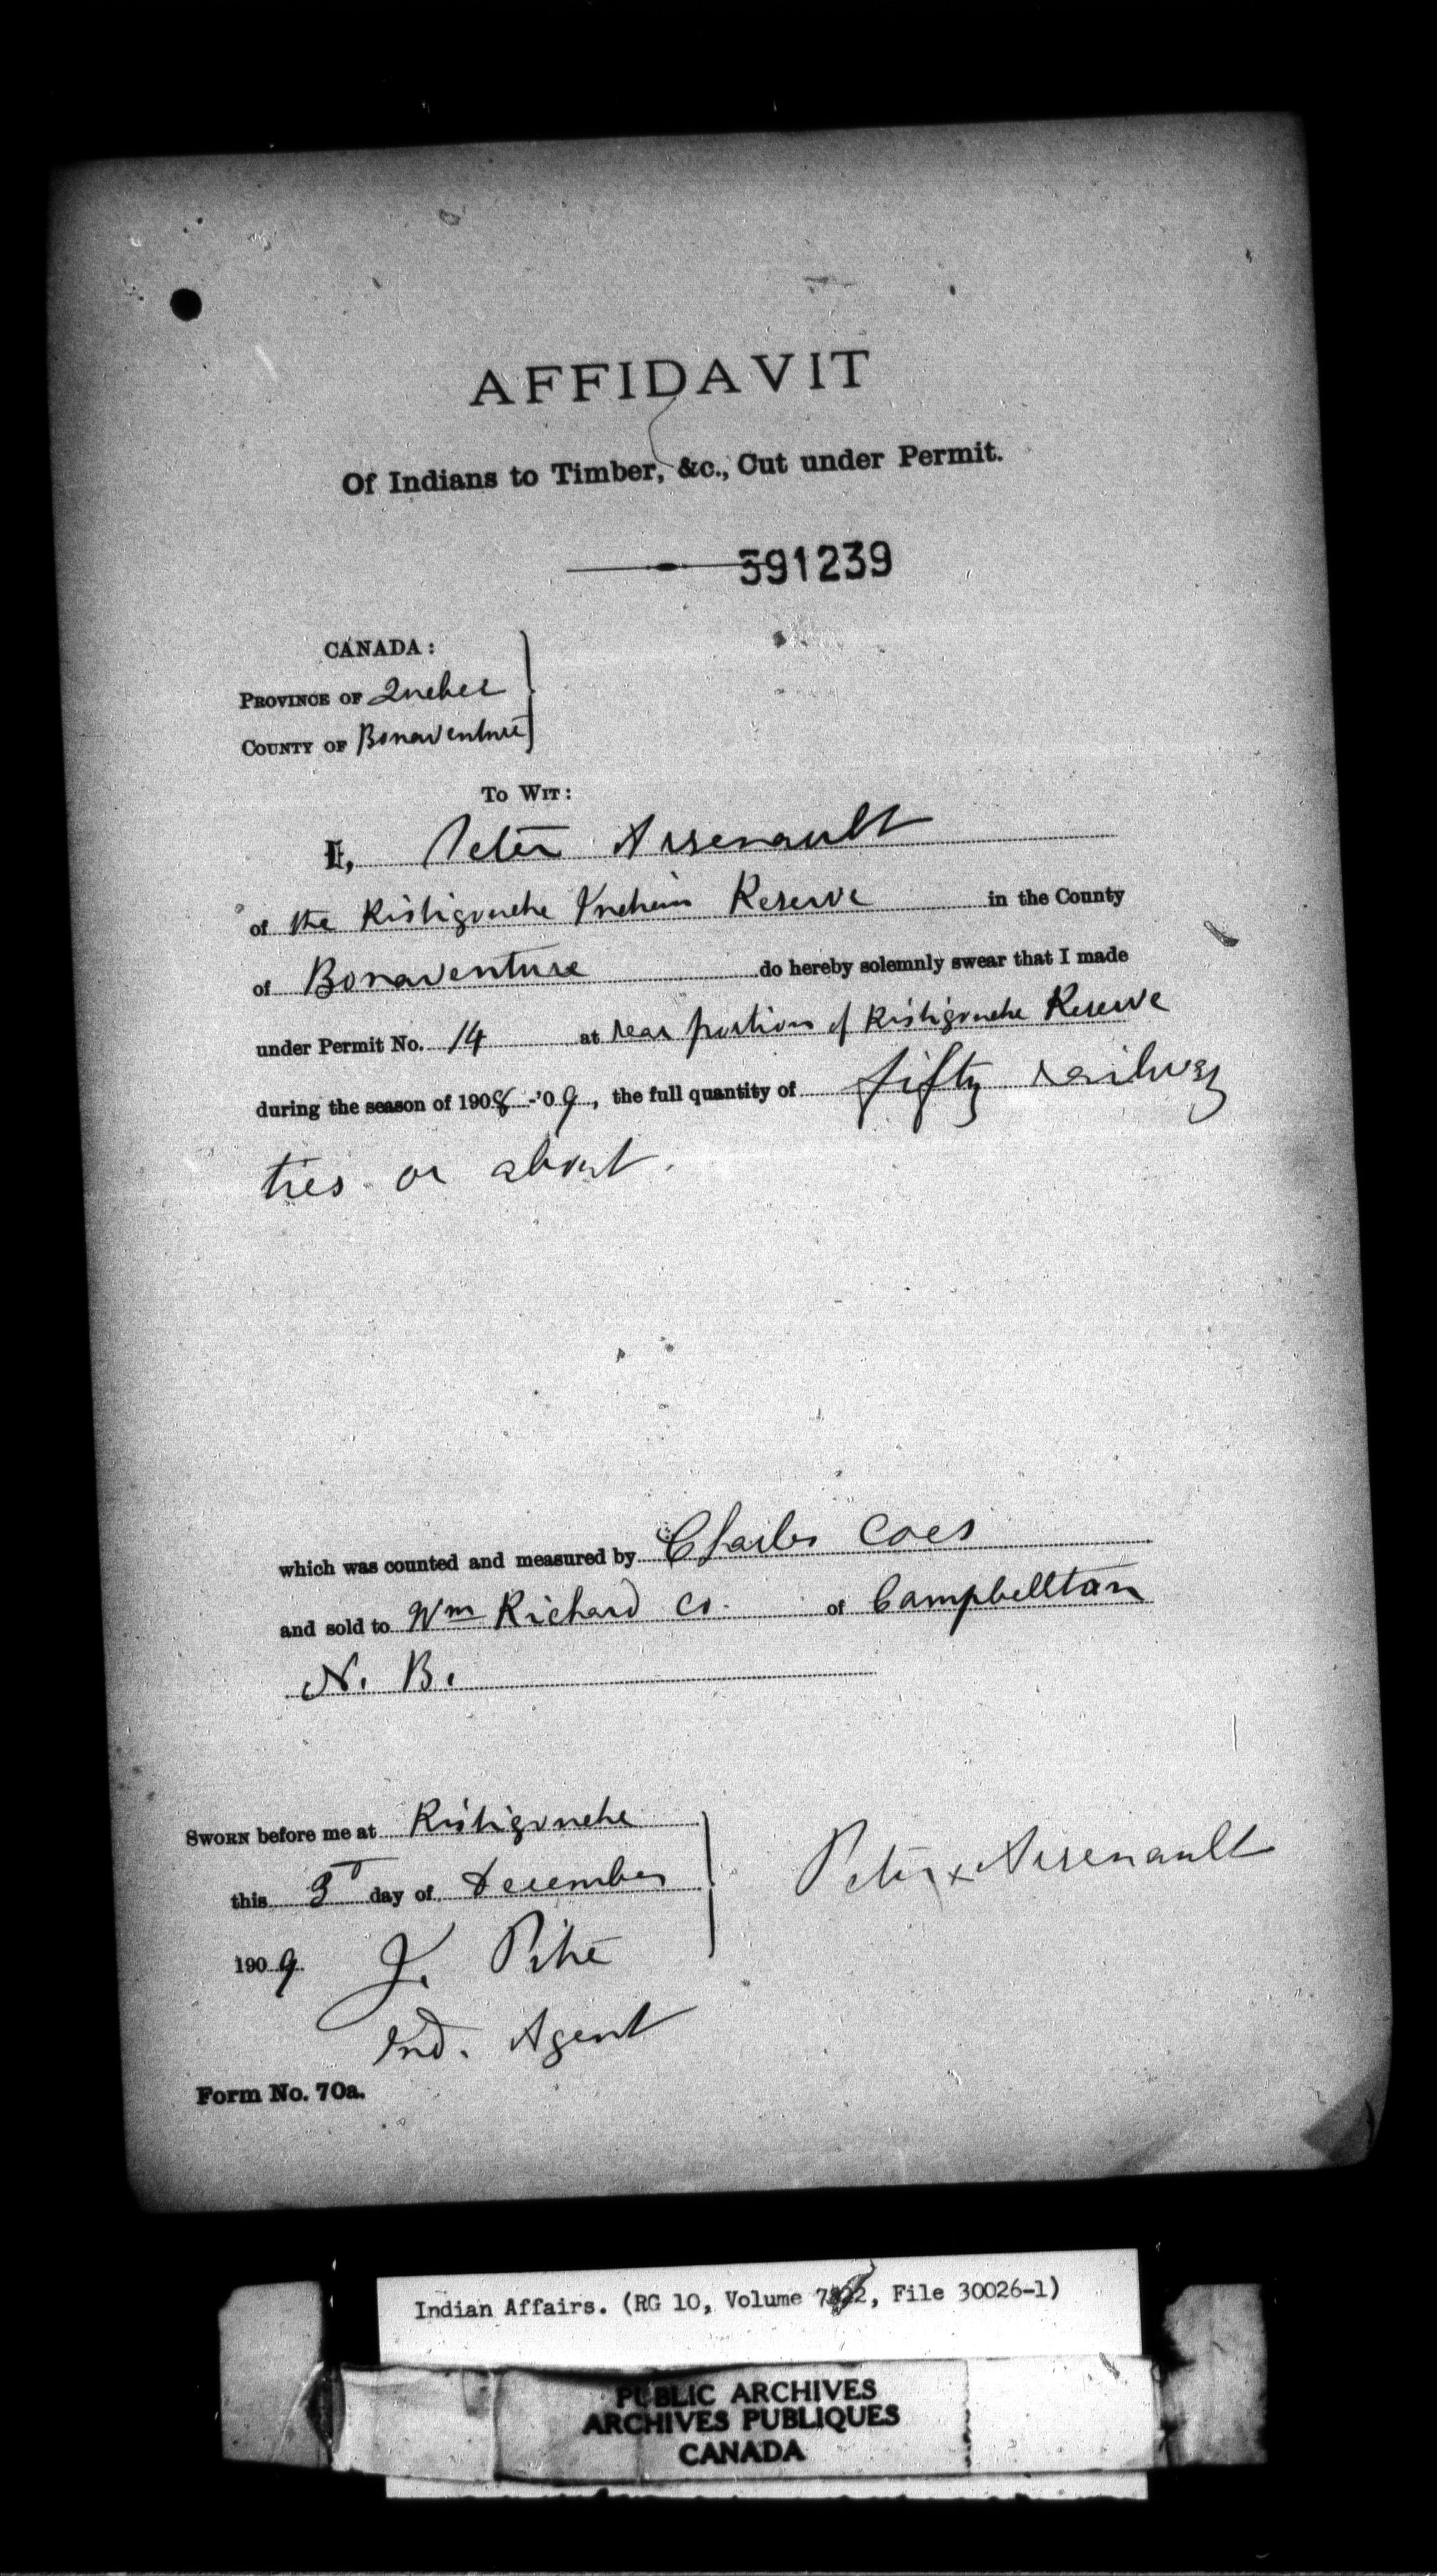 AFFIDAVIT
Of Indians to Timber, &c., Cut under Permit.
391239
CANADA:
PROVINCE OF Quebec
COUNTY OF Bonaventure
TO WIT:
I, Peter Arsenault
of the Ristigouche Indian Reserve in the County
of Bonaventure do hereby solemnly swear that I made
under Permit No. 14 at rear portion of Ristigouche Reserve
during the season of 1908-'09, the full quantity of fifty railway
ties or about.
which was counted and measured by Charles Coes
and sold to Wm Richard Co. of Campbellton
N. B.
SWORN before me at Ristigouche
this 3 day of December
1909
Peter x Arsenault
J. Pitre
Ind. Agent
Form No. 70a.
Indian Affairs. (RG 10, Volume, File 30026-1)
PUBLIC ARCHIVES
ARCHIVES PUBLIQUES
CANADA